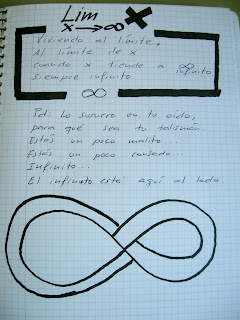 Lim
x→∞
x
Viviendo al límite,
Al límite de x
cuando x tiende a ∞
infinito
Siempre infinito
∞
Pd: Lo susurro en tu oído,
para qué sea tu talismán
Estás un poco malito
Estás un poco cansado...
Infinito...
El infinito está aquí al lado